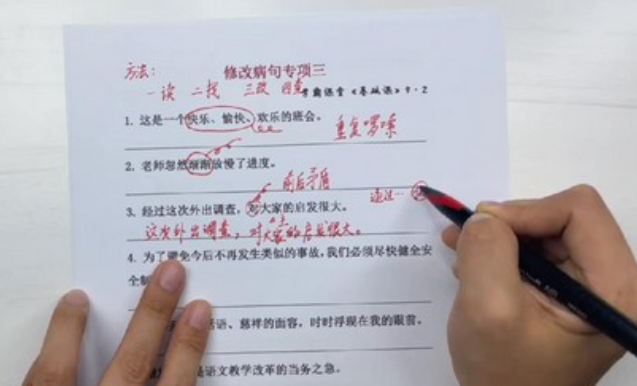 方法：
修改病句专项三
一读 二找 三改 四查
学霸课堂《基础课》9·2
1. 这是一个快乐、愉快、欢乐的班会。
重复啰嗦
2. 老师忽然渐渐放慢了进度。
前后矛盾
3. 经过这次外出调查，对大家的启发很大。
通过…
这次外出调查，对大家的启发很大。
4. 为了避免今后不再发生类似的事故，我们必须尽快健全安
全制
语、慈祥的面容，时时浮现在我的眼前。
是语文教学改革的当务之急。